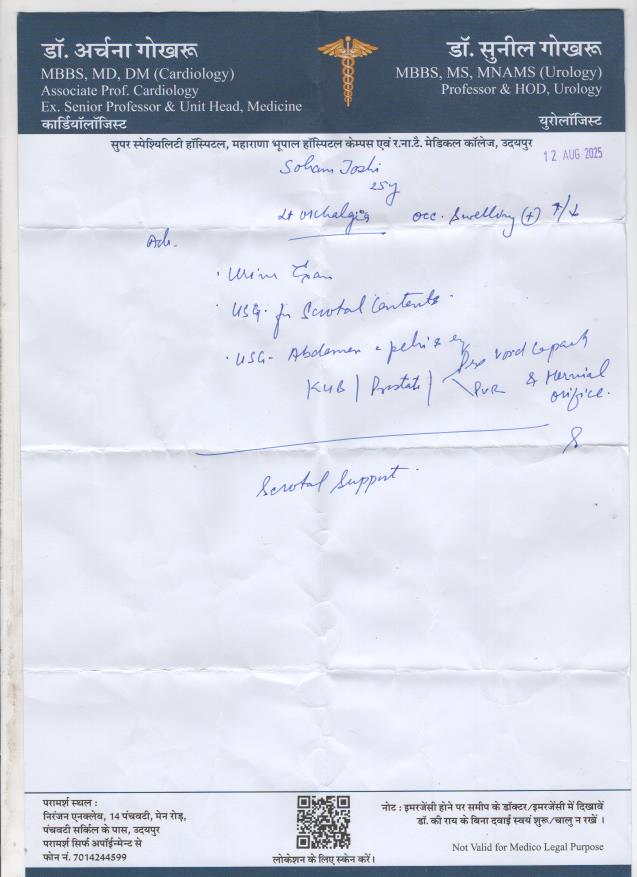 डॉ. अर्चना गोखरू
MBBS, MD, DM (Cardiology)
Associate Prof. Cardiology
Ex. Senior Professor & Unit Head, Medicine
कार्डियॉलॉजिस्ट
डॉ. सुनील गोखरू
MBBS, MS, MNAMS (Urology)
Professor & HOD, Urology
युरोलॉजिस्ट
सुपर स्पेश्यिलिटी हॉस्पिटल, महाराणा भूपाल हॉस्पिटल केम्पस एवं र.ना.टै. मेडिकल कॉलेज, उदयपुर
12 AUG 2025
Soham Joshi
25y
Lt orchalgia occ. Swelling (+) ↑/↓
Adv.
· Urine Exam
· USG. for Scrotal Contents.
· USG- Abdomen & pelvis
KUB / Prostate / Pre void Capacity
PVR & Hernial
orifice.
Scrotal Support.
परामर्श स्थल :
निरंजन एनक्लेव, 14 पंचवटी, मेन रोड़,
पंचवटी सर्किल के पास, उदयपुर
परामर्श सिर्फ अपॉईन्मेन्ट से
फोन नं. 7014244599
लोकेशन के लिए स्केन करें।
नोट : इमरजेंसी होने पर समीप के डॉक्टर/इमरजेंसी में दिखावें
डॉ. की राय के बिना दवाई स्वयं शुरू/चालु न रखें ।
Not Valid for Medico Legal Purpose